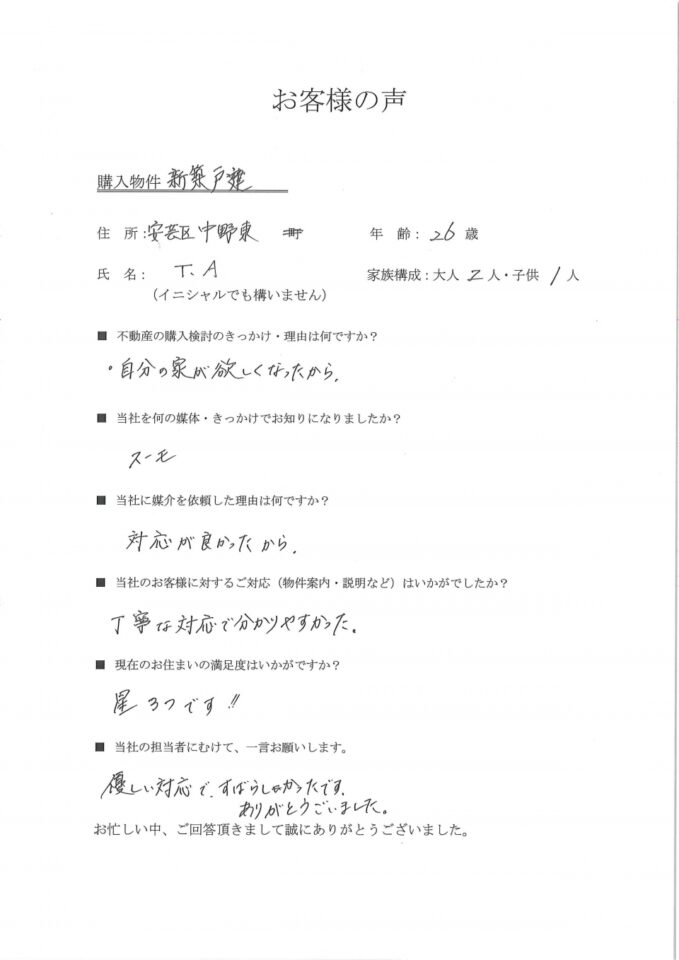 お客様の声
購入物件 新築戸建
住 所:安芸区中野東 町 年 齢: 26 歳
氏 名: T.A 家族構成:大人 2 人・子供 1 人
(イニシャルでも構いません)
■ 不動産の購入検討のきっかけ・理由は何ですか?
・自分の家が欲しくなったから.
■ 当社を何の媒体・きっかけでお知りになりましたか?
スーモ
■ 当社に媒介を依頼した理由は何ですか?
対応が良かったから.
■ 当社のお客様に対するご対応(物件案内・説明など)はいかがでしたか?
丁寧な対応で分かりやすかった。
■ 現在のお住まいの満足度はいかがですか?
星3つです!!
■ 当社の担当者にむけて、一言お願いします。
優しい対応で、すばらしかったです.
ありがとうございました。
お忙しい中、ご回答頂きまして誠にありがとうございました。